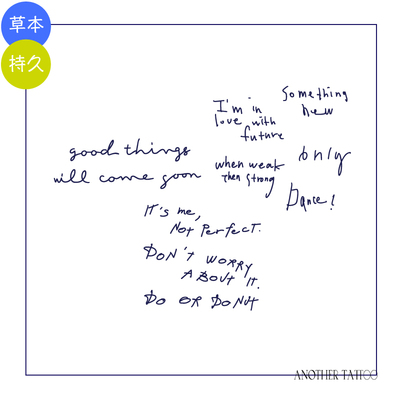 草本
持久
I'm in
love with
future
something
new
good things
will come soon
when weak
then strong
only
Dance!
It's me,
Not Perfect.
DON'T WORRY
ABOUT IT.
DO OR DONUT
ANOTHER TATTOO